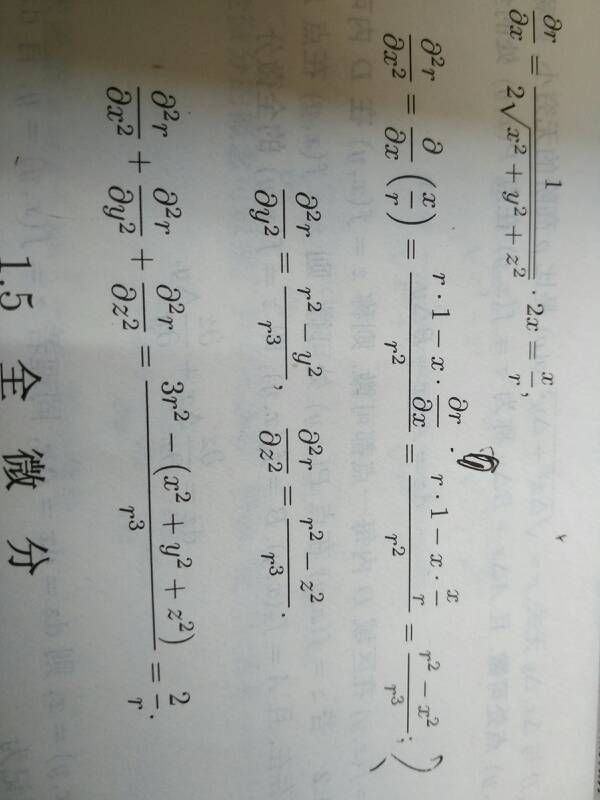 ∂r/∂x = 1/(2√(x² + y² + z²)) · 2x = x/r,
∂²r/∂x² = ∂/∂x (x/r) = (r · 1 − x · ∂r/∂x)/r² = (r · 1 − x · x/r)/r² = (r² − x²)/r³;
∂²r/∂y² = (r² − y²)/r³, ∂²r/∂z² = (r² − z²)/r³.
∂²r/∂x² + ∂²r/∂y² + ∂²r/∂z² = (3r² − (x² + y² + z²))/r³ = 2/r.
1.5 全 微 分